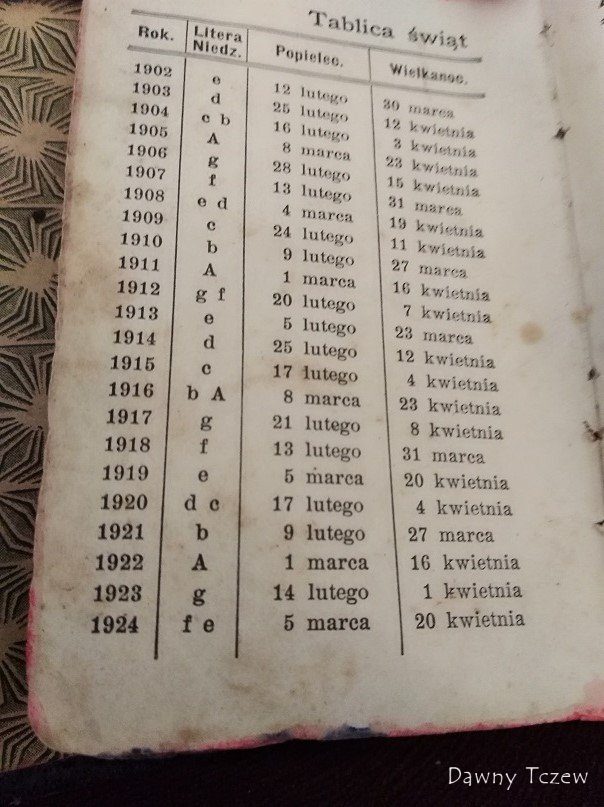 Tablica świąt
Rok. Litera Niedz. Popielec. Wielkanoc.
1902 e 12 lutego 30 marca
1903 d 25 lutego 12 kwietnia
1904 c b 16 lutego 3 kwietnia
1905 A 8 marca 23 kwietnia
1906 g 28 lutego 15 kwietnia
1907 f 13 lutego 31 marca
1908 e d 4 marca 19 kwietnia
1909 c 24 lutego 11 kwietnia
1910 b 9 lutego 27 marca
1911 A 1 marca 16 kwietnia
1912 g f 20 lutego 7 kwietnia
1913 e 5 lutego 23 marca
1914 d 25 lutego 12 kwietnia
1915 c 17 lutego 4 kwietnia
1916 b A 8 marca 23 kwietnia
1917 g 21 lutego 8 kwietnia
1918 f 13 lutego 31 marca
1919 e 5 marca 20 kwietnia
1920 d c 17 lutego 4 kwietnia
1921 b 9 lutego 27 marca
1922 A 1 marca 16 kwietnia
1923 g 14 lutego 1 kwietnia
1924 f e 5 marca 20 kwietnia
Dawny Tczew